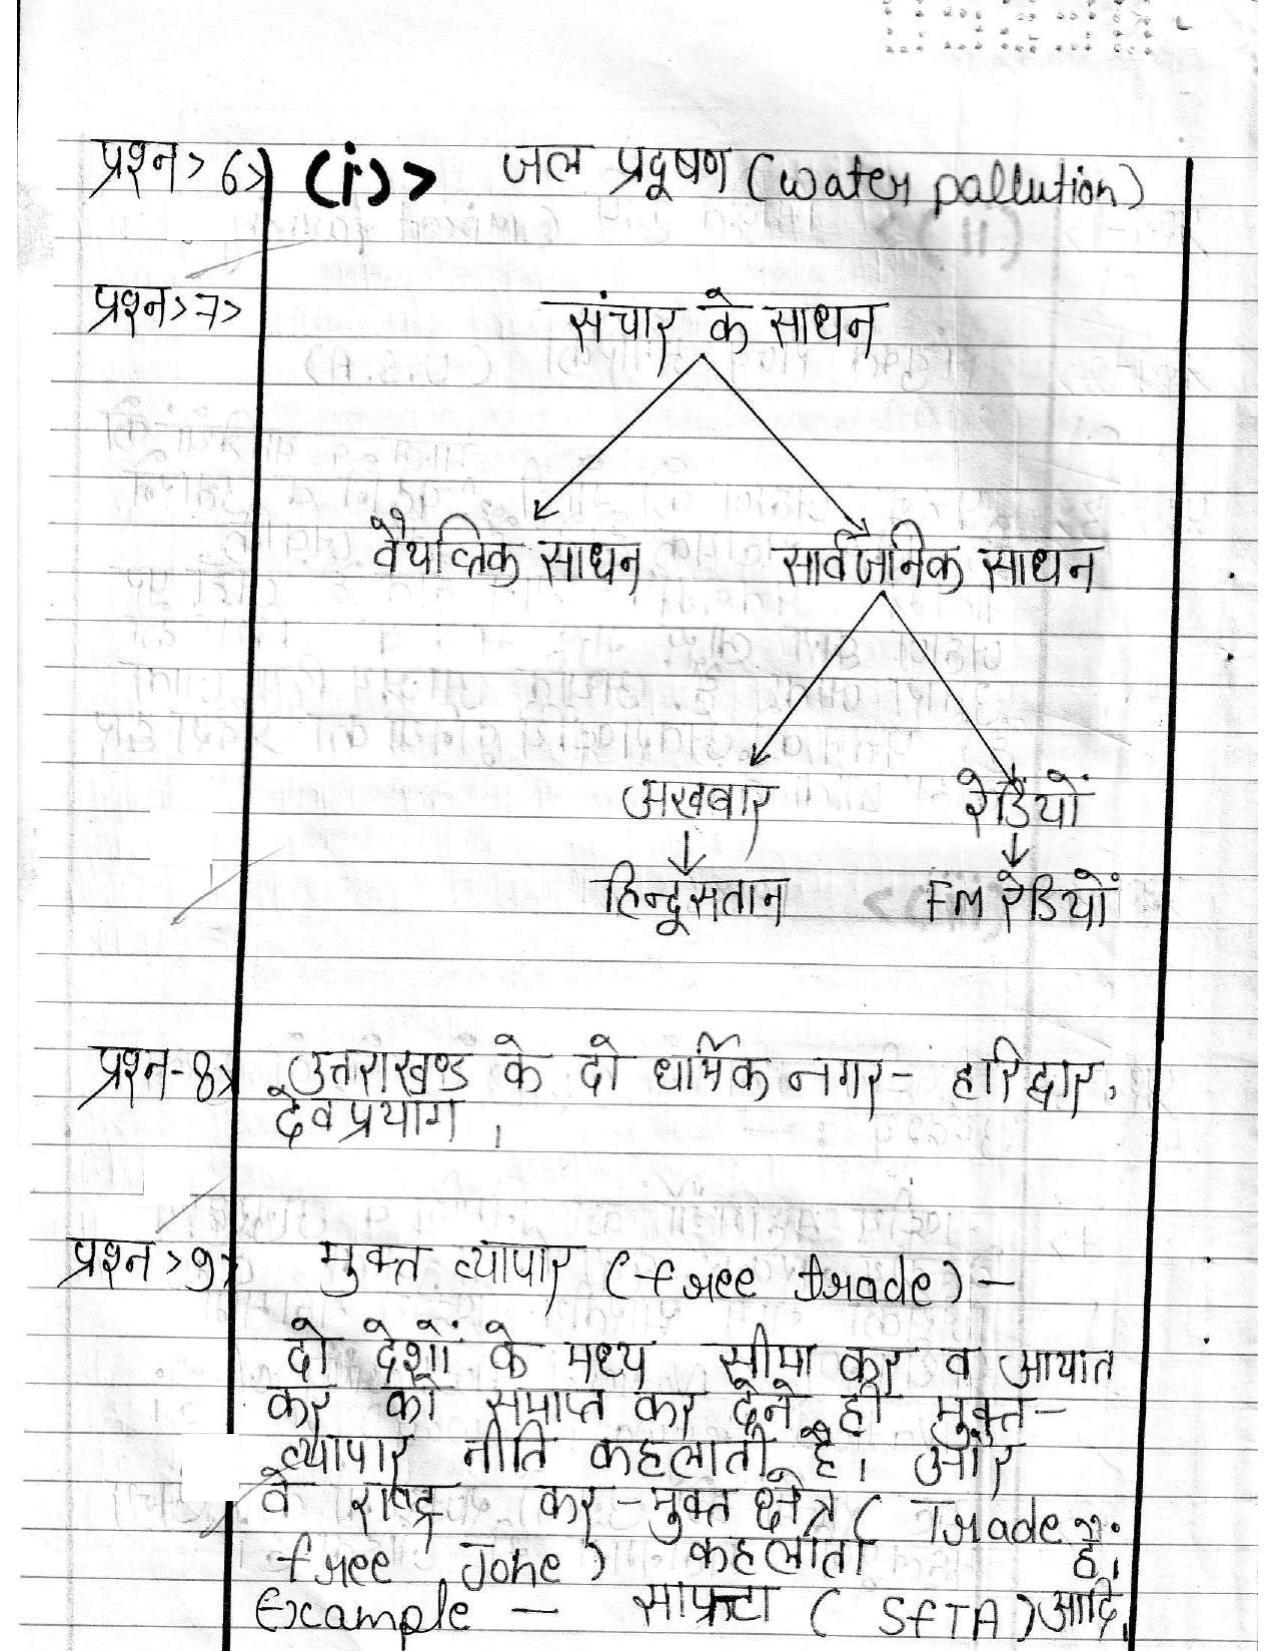 प्रश्न> 6> (i)> जल प्रदूषण (water pallution)
प्रश्न>7> संचार के साधन
वैयक्तिक साधन सार्वजनिक साधन
अखबार रेडियों
हिन्दूसतान FM रेडियों
प्रश्न-8> उत्तराखण्ड के दो धार्मिक नगर- हरिद्वार,
देवप्रयाग ।
प्रश्न >9> मुक्त व्यापार (free trade) -
दो देशों के मध्य सीमा कर व आयात
कर को समाप्त कर देने ही मुक्त-
व्यापार नीति कहलाती है। और
वे राष्ट्र कर-मुक्त क्षेत्र ( Trade
free Jone) कहलाता हैं।
Example - साफ्टा ( SfTA ) आदि,